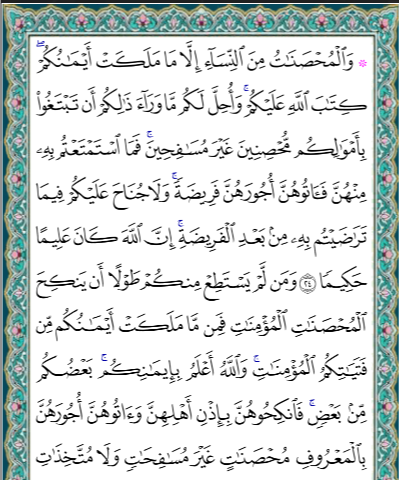 ۞ وَٱلْمُحْصَنَٰتُ مِنَ ٱلنِّسَآءِ إِلَّا مَا مَلَكَتْ أَيْمَٰنُكُمْ ۖ
كِتَٰبَ ٱللَّهِ عَلَيْكُمْ ۚ وَأُحِلَّ لَكُم مَّا وَرَآءَ ذَٰلِكُمْ أَن تَبْتَغُوا۟
بِأَمْوَٰلِكُم مُّحْصِنِينَ غَيْرَ مُسَٰفِحِينَ ۚ فَمَا ٱسْتَمْتَعْتُم بِهِۦ
مِنْهُنَّ فَـَٔاتُوهُنَّ أُجُورَهُنَّ فَرِيضَةً ۚ وَلَا جُنَاحَ عَلَيْكُمْ فِيمَا
تَرَٰضَيْتُم بِهِۦ مِنۢ بَعْدِ ٱلْفَرِيضَةِ ۚ إِنَّ ٱللَّهَ كَانَ عَلِيمًا
حَكِيمًا ٢٤ وَمَن لَّمْ يَسْتَطِعْ مِنكُمْ طَوْلًا أَن يَنكِحَ
ٱلْمُحْصَنَٰتِ ٱلْمُؤْمِنَٰتِ فَمِن مَّا مَلَكَتْ أَيْمَٰنُكُم مِّن
فَتَيَٰتِكُمُ ٱلْمُؤْمِنَٰتِ ۚ وَٱللَّهُ أَعْلَمُ بِإِيمَٰنِكُم ۚ بَعْضُكُم
مِّنۢ بَعْضٍ ۚ فَٱنكِحُوهُنَّ بِإِذْنِ أَهْلِهِنَّ وَءَاتُوهُنَّ أُجُورَهُنَّ
بِٱلْمَعْرُوفِ مُحْصَنَٰتٍ غَيْرَ مُسَٰفِحَٰتٍ وَلَا مُتَّخِذَٰتِ